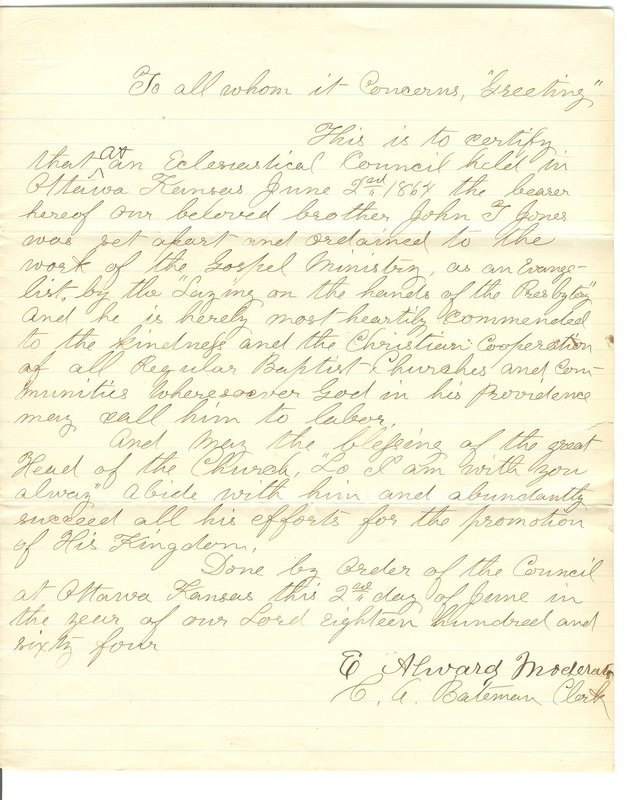 To all whom it Concerns, "Greeting"
This is to certify
that at an Eclesiastical Council held in
Ottawa Kansas June 2nd 1864 the bearer
hereof our beloved brother John T Jones
was set apart and ordained to the
work of the Gospel Ministry, as an Evange-
list, by the "Laying on the hands of the Presbytery"
And he is hereby most heartily commended
to the kindness and the Christian Cooperation
of all Regular Baptist Churches and Com-
munities Wheresoever God in his Providence
may call him to labor,
And may the blessing of the great
Head of the Church, "Lo I am with you
alway" abide with him and abundantly
succeed all his efforts for the promotion
of His Kingdom.
Done by Order of the Council
at Ottawa Kansas this 2nd day of June in
the year of our Lord Eighteen hundred and
sixty four
E Alward Moderator
C. A. Bateman Clerk